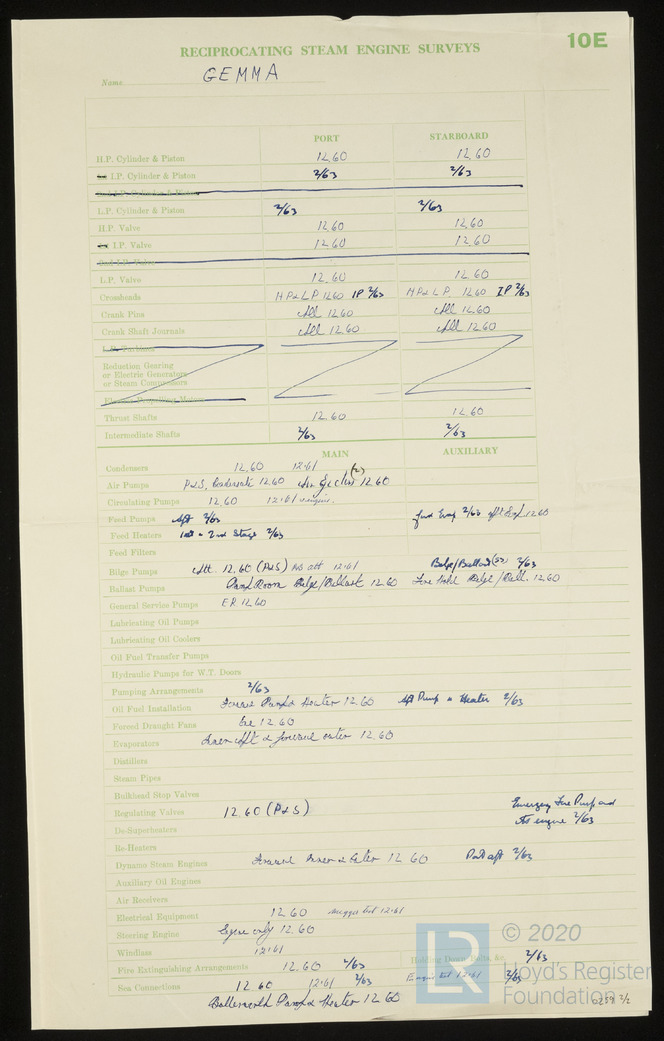 10E
RECIPROCATING STEAM ENGINE SURVEYS
Name GEMMA
PORT STARBOARD
H.P. Cylinder & Piston 12.60 12.60
I.P. Cylinder & Piston 2/63 2/63
2nd I.P. Cylinder & Piston
L.P. Cylinder & Piston 2/63 2/63
H.P. Valve 12.60 12.60
I.P. Valve 12.60 12.60
2nd I.P. Valve
L.P. Valve 12.60 12.60
Crossheads HP & LP 12.60 IP 2/63 HP & L.P. 12.60 IP 2/63
Crank Pins All 12.60 All 12.60
Crank Shaft Journals All 12.60 All 12.60
L.P. Turbine
Reduction Gearing
or Electric Generators
or Steam Compressors
Electric Propelling Motors
Thrust Shafts 12.60 12.60
Intermediate Shafts 2/63 2/63
MAIN AUXILIARY
Condensers 12.60 12.61
Air Pumps P&S, Condensate 12.60 (2) 12.60
Circulating Pumps 12.60 12.61 engine.
Feed Pumps Aft 2/63 2/63 12.60
Feed Heaters 1st & 2nd Stage 2/63
Feed Filters
Bilge Pumps Att. 12.60 (P&S) att 12.61 Bilge/Ballast 2/63
Ballast Pumps Room Bilge/Ballast 12.60 Fore Hold Bilge/Ball. 12.60
General Service Pumps E.R. 12.60
Lubricating Oil Pumps
Lubricating Oil Coolers
Oil Fuel Transfer Pumps
Hydraulic Pumps for W.T. Doors
Pumping Arrangements 2/63
Oil Fuel Installation Forward Pump & Heater 12.60 Aft Pump & Heater 2/63
Forced Draught Fans 12.60
Evaporators Inner aft & forward outer 12.60
Distillers
Steam Pipes
Bulkhead Stop Valves
Regulating Valves 12.60 (P&S) Emergency Fire Pump and
its engine 2/63
De-Superheaters
Re-Heaters
Dynamo Steam Engines Forward Inner & Outer 12.60 Port aft 2/63
Auxiliary Oil Engines
Air Receivers
Electrical Equipment 12.60 megger test 12.61
Steering Engine only 12.60
Windlass 12.61
Holding Down Bolts, &c. 2/63
Fire Extinguishing Arrangements 12.60 2/63
Sea Connections 12.60 12.61 2/63 12.61 2/63
Pump & Heater 12.60
LR
© 2020
Lloyd's Register
Foundation
0259 2/2